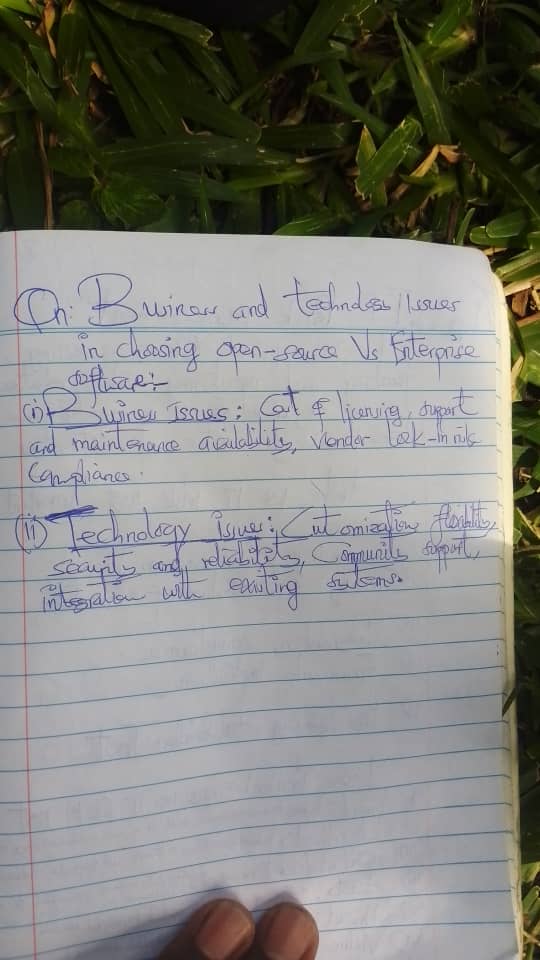 Qn: Business and technology issues
in choosing open-source Vs Enterprise
software:-
(i) Business issues: Cost & licensing, support
and maintenance availability, Vendor lock-in risk
Compliance.
(ii) Technology issues: Customization flexibility,
security and reliability, Community support,
integration with existing systems.